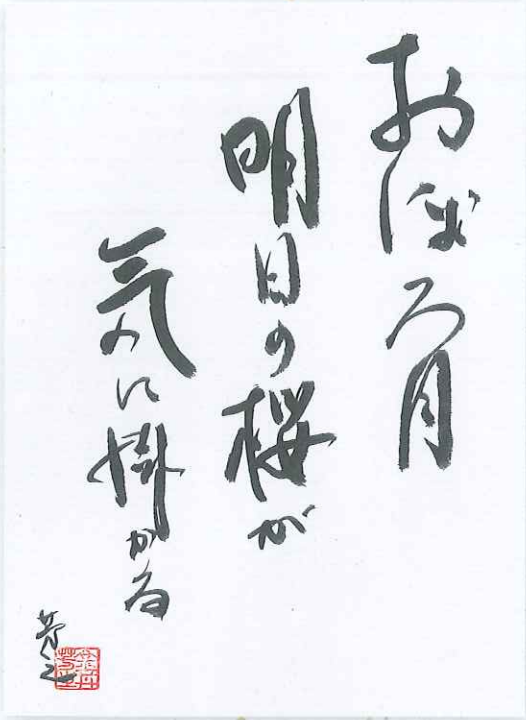 おぼろ月
明日の桜が
気に掛かる
芳之